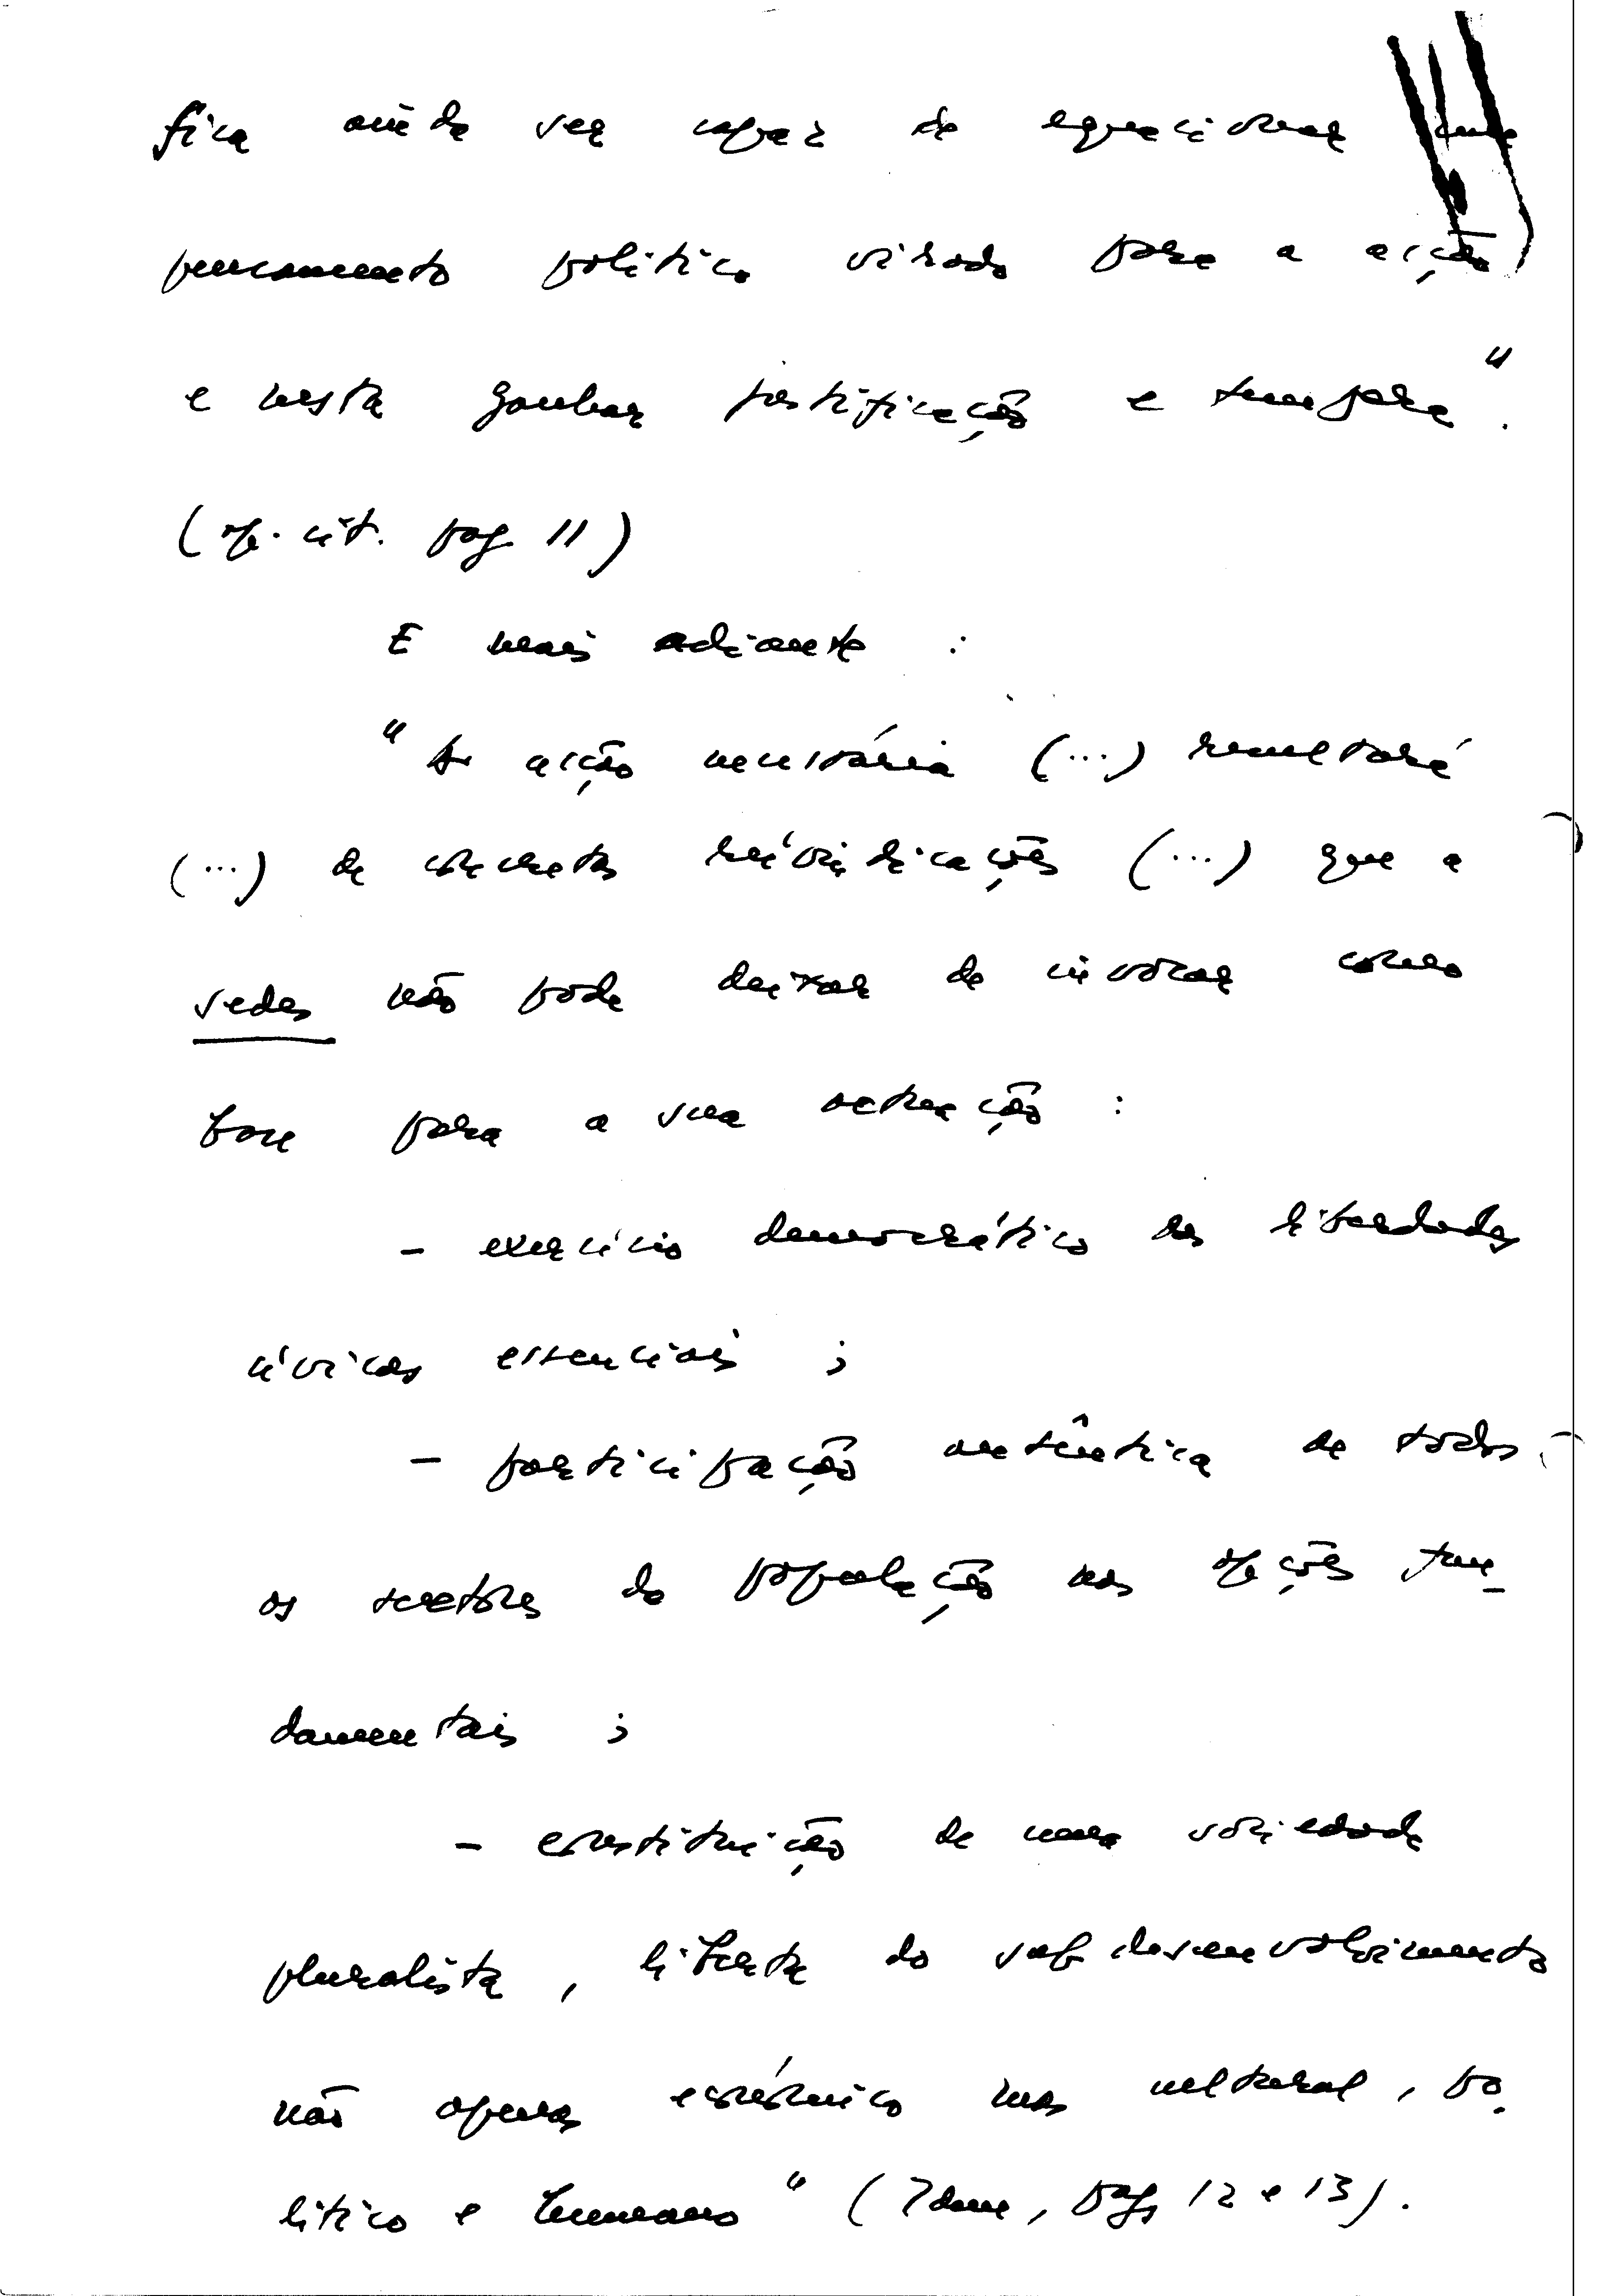 fica ainda ser capaz de equacionar um
pensamento político virado para a acção
e nesta ganhar justificação e tempera".
(op. cit. pag 11)
E mais adiante :
"A acção necessária (...) resultará
(...) de concretas reivindicações (...) que a
sedes não pode deixar de invocar como
base para a sua actuação :
- exercício democrático das liberdades
cívicas essenciais ;
- participação autêntica de todos
os sectores da população nas opções fun-
damentais ;
- constituição de uma sociedade
pluralista, liberta do subdesenvolvimento
não apenas económico mas cultural, po-
lítico e humano" (Idem, pags 12 e 13).